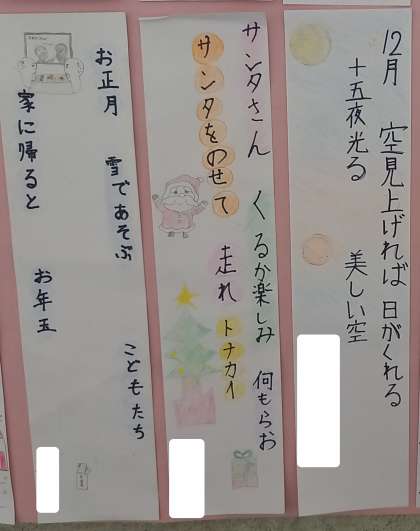 12月 空見上げれば 日がくれる
十五夜光る 美しい空
サンタさん くるか楽しみ 何もらお
サンタをのせて 走れ トナカイ
お正月 雪であそぶ こどもたち
家に帰ると お年玉